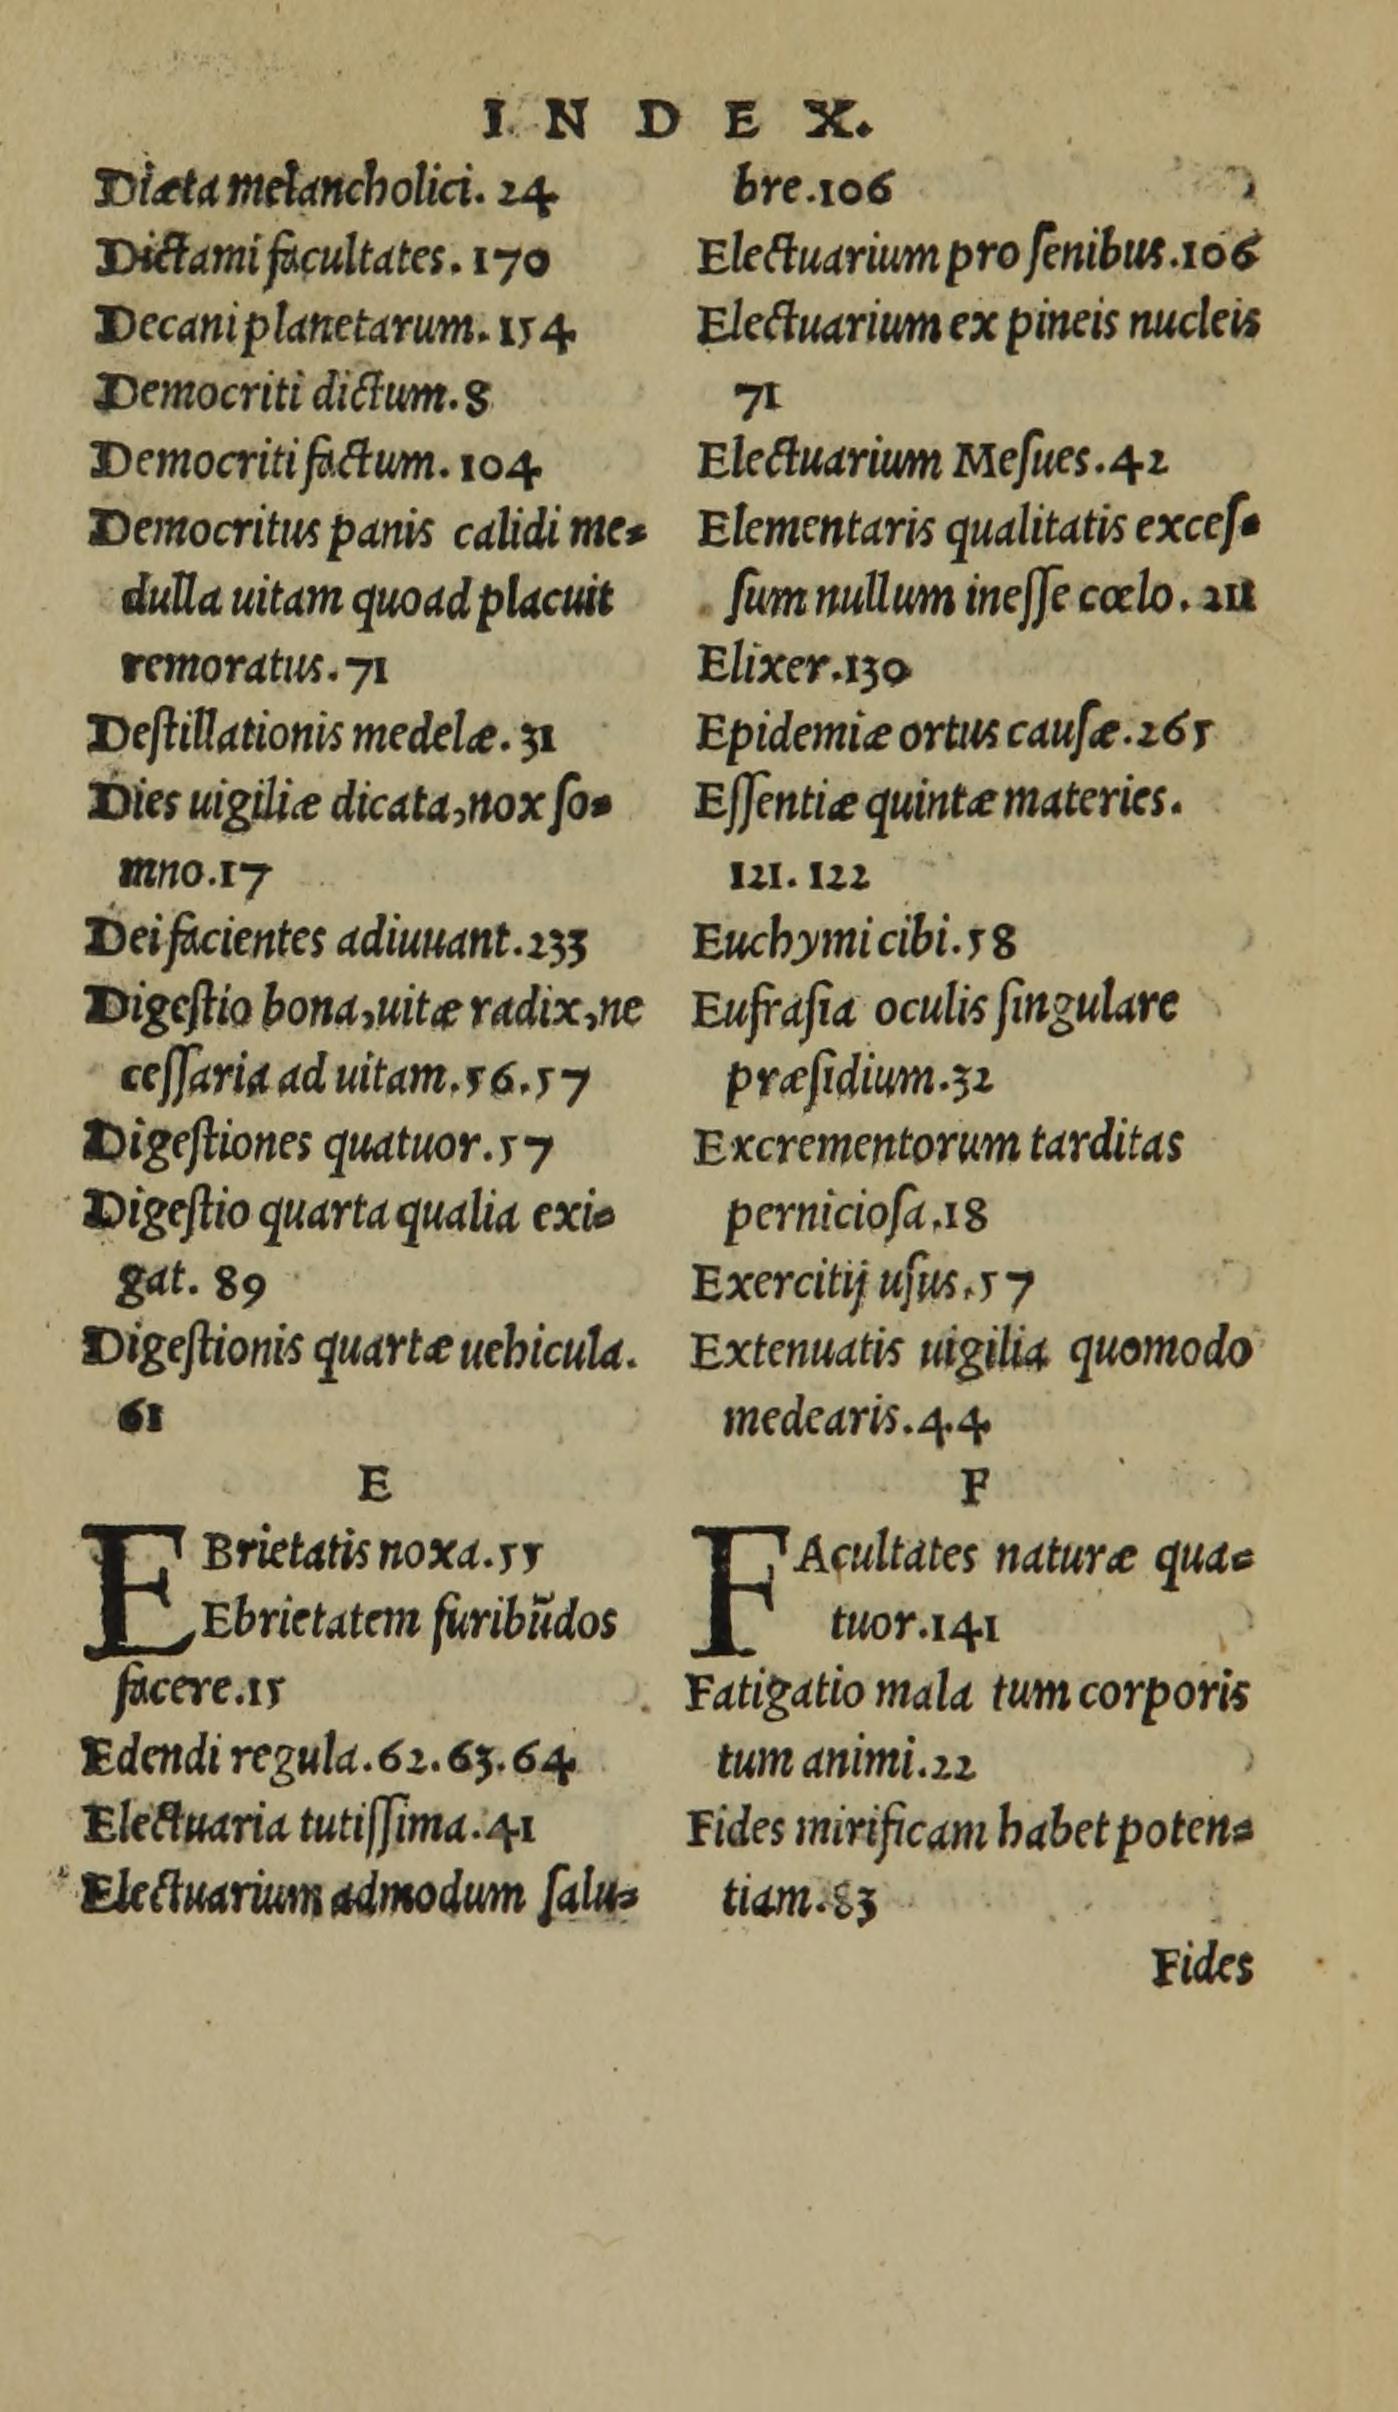 INDEX.
Diæta melancholici. 24
Dictami facultates. 170
Decani planetarum. 154
Democriti dictum. 8
Democriti factum. 104
Democritus panis calidi me-
dulla uitam quoad placuit
remoratus. 71
Deſtillationis medelæ. 31
Dies uigiliæ dicata, nox ſo-
mno. 17
Dei facientes adiuuant. 233
Digeſtio bona, uitæ radix, ne
ceſſaria ad uitam. 56. 57
Digeſtiones quatuor. 57
Digeſtio quarta qualia exi-
gat. 89
Digeſtionis quartæ uehicula.
61
E
EBrietatis noxa. 55
Ebrietatem furibūdos
facere. 15
Edendi regula. 62. 63. 64
Electuaria tutiſſima. 41
Electuarium admodum ſalu-
bre. 106
Electuarium pro ſenibus. 106
Electuarium ex pineis nucleis
71
Electuarium Meſues. 42
Elementaris qualitatis exceſ-
ſum nullum ineſſe cœlo. 211
Elixer. 130
Epidemiæ ortus cauſæ. 265
Eſſentiæ quintæ materies.
121. 122
Euchymi cibi. 58
Eufraſia oculis ſingulare
præſidium. 32
Excrementorum tarditas
pernicioſa. 18
Exercitij uſus. 57
Extenuatis uigilia quomodo
medearis. 44
F
FAcultates naturæ qua-
tuor. 141
Fatigatio mala tum corporis
tum animi. 22
Fides mirificam habet poten-
tiam. 83
Fides